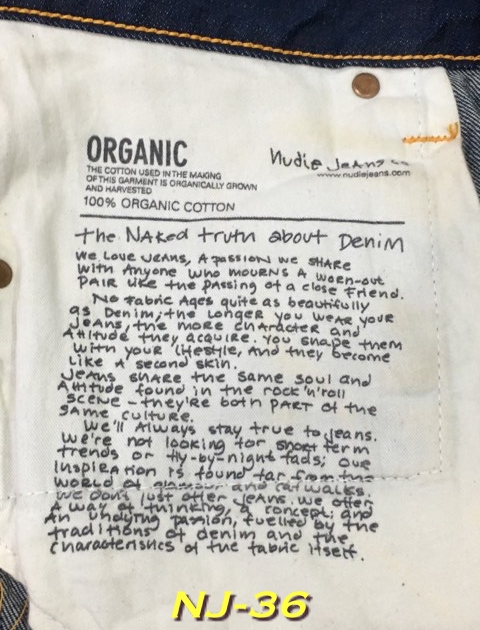 ORGANIC
THE COTTON USED IN THE MAKING
OF THIS GARMENT IS ORGANICALLY GROWN
AND HARVESTED
100% ORGANIC COTTON
Nudie Jeans co
www.nudiejeans.com
the NAked truth about Denim
We Love Jeans, A passion we share
with Anyone who mourns A worn-out
pair like the passing of a close friend.
No Fabric Ages quite as beautifully
as Denim; the Longer you wear your
Jeans, the more character and
Attitude they acquire. You shape them
with your lifestyle, and they become
Like A second skin.
Jeans share the same soul and
Attitude found in the rock'n'roll
scene – they're both part of the
same culture.
We'll Always stay true to jeans.
We're not looking for short term
trends or fly-by-night fads; our
inspiration is found far from the
world of glamour and catwalks.
We don't just offer jeans. we offer
A way of thinking, a concept; and
An undying passion, fuelled by the
traditions of denim and the
characteristics of the fabric itself.
NJ-36